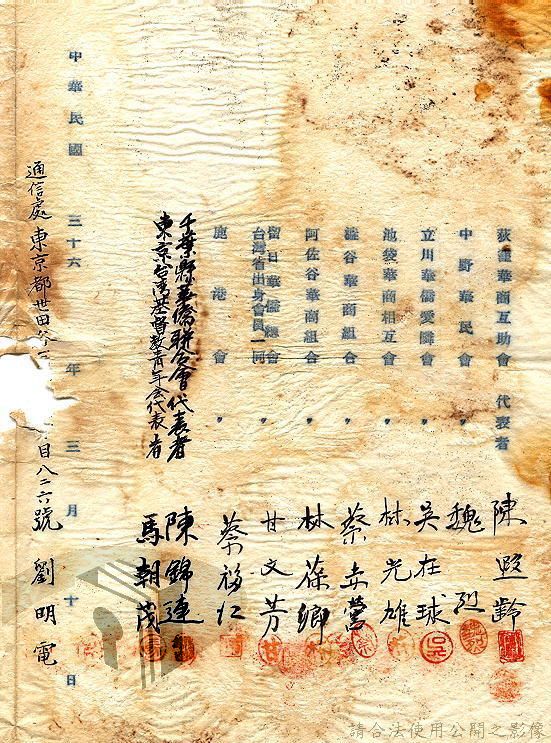 荻窪華商互助會 代表者 陳照齡
中野華民會 〃 魏烈
立川華僑愛隣會 〃 吳在球
池袋華商相互會 〃 林光雄
澁谷華商組合 〃 蔡營
阿佐谷華商組合 〃 林葆卿
留日華僑總會
台灣省出身會員一同 〃 甘文芳
鹿港會 〃 蔡仁
千葉縣華僑聯合會代表者 陳錦連
東京台湾基督教青年会代表者 馬朝茂
中華民國三十六年三月十日
通信處 東京都世田谷 目八二六號 劉明電
請合法使用公開之影像